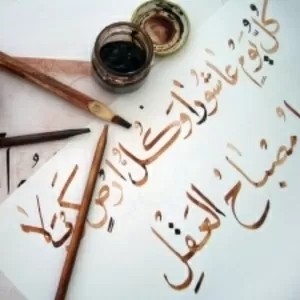 كُلُّ يَوْمٍ عَاشُورَا وَ كُلُّ أَرْضٍ كَرْبَلَا
مِصْبَاحُ العَقْلِ